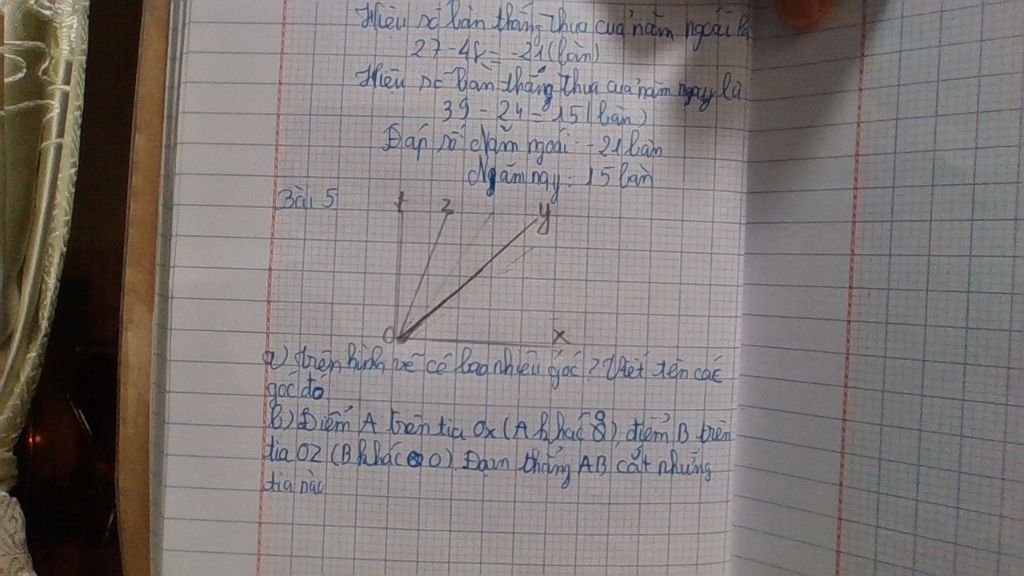 Hiệu số bàn thắng thua của năm ngoái là
27 - 48 = -21 (bàn)
Hiệu số bàn thắng thua của năm nay là
39 - 24 = 15 (bàn)
Đáp số Năm ngoái: -21 bàn
Năm nay: 15 bàn
Bài 5
t z y
O x
a) trên hình vẽ có bao nhiêu góc? Viết tên các
góc đó
b) Điểm A trên tia Ox (A khác O) điểm B trên
tia Oz (B khác O) Đoạn thẳng AB cắt những
tia nào